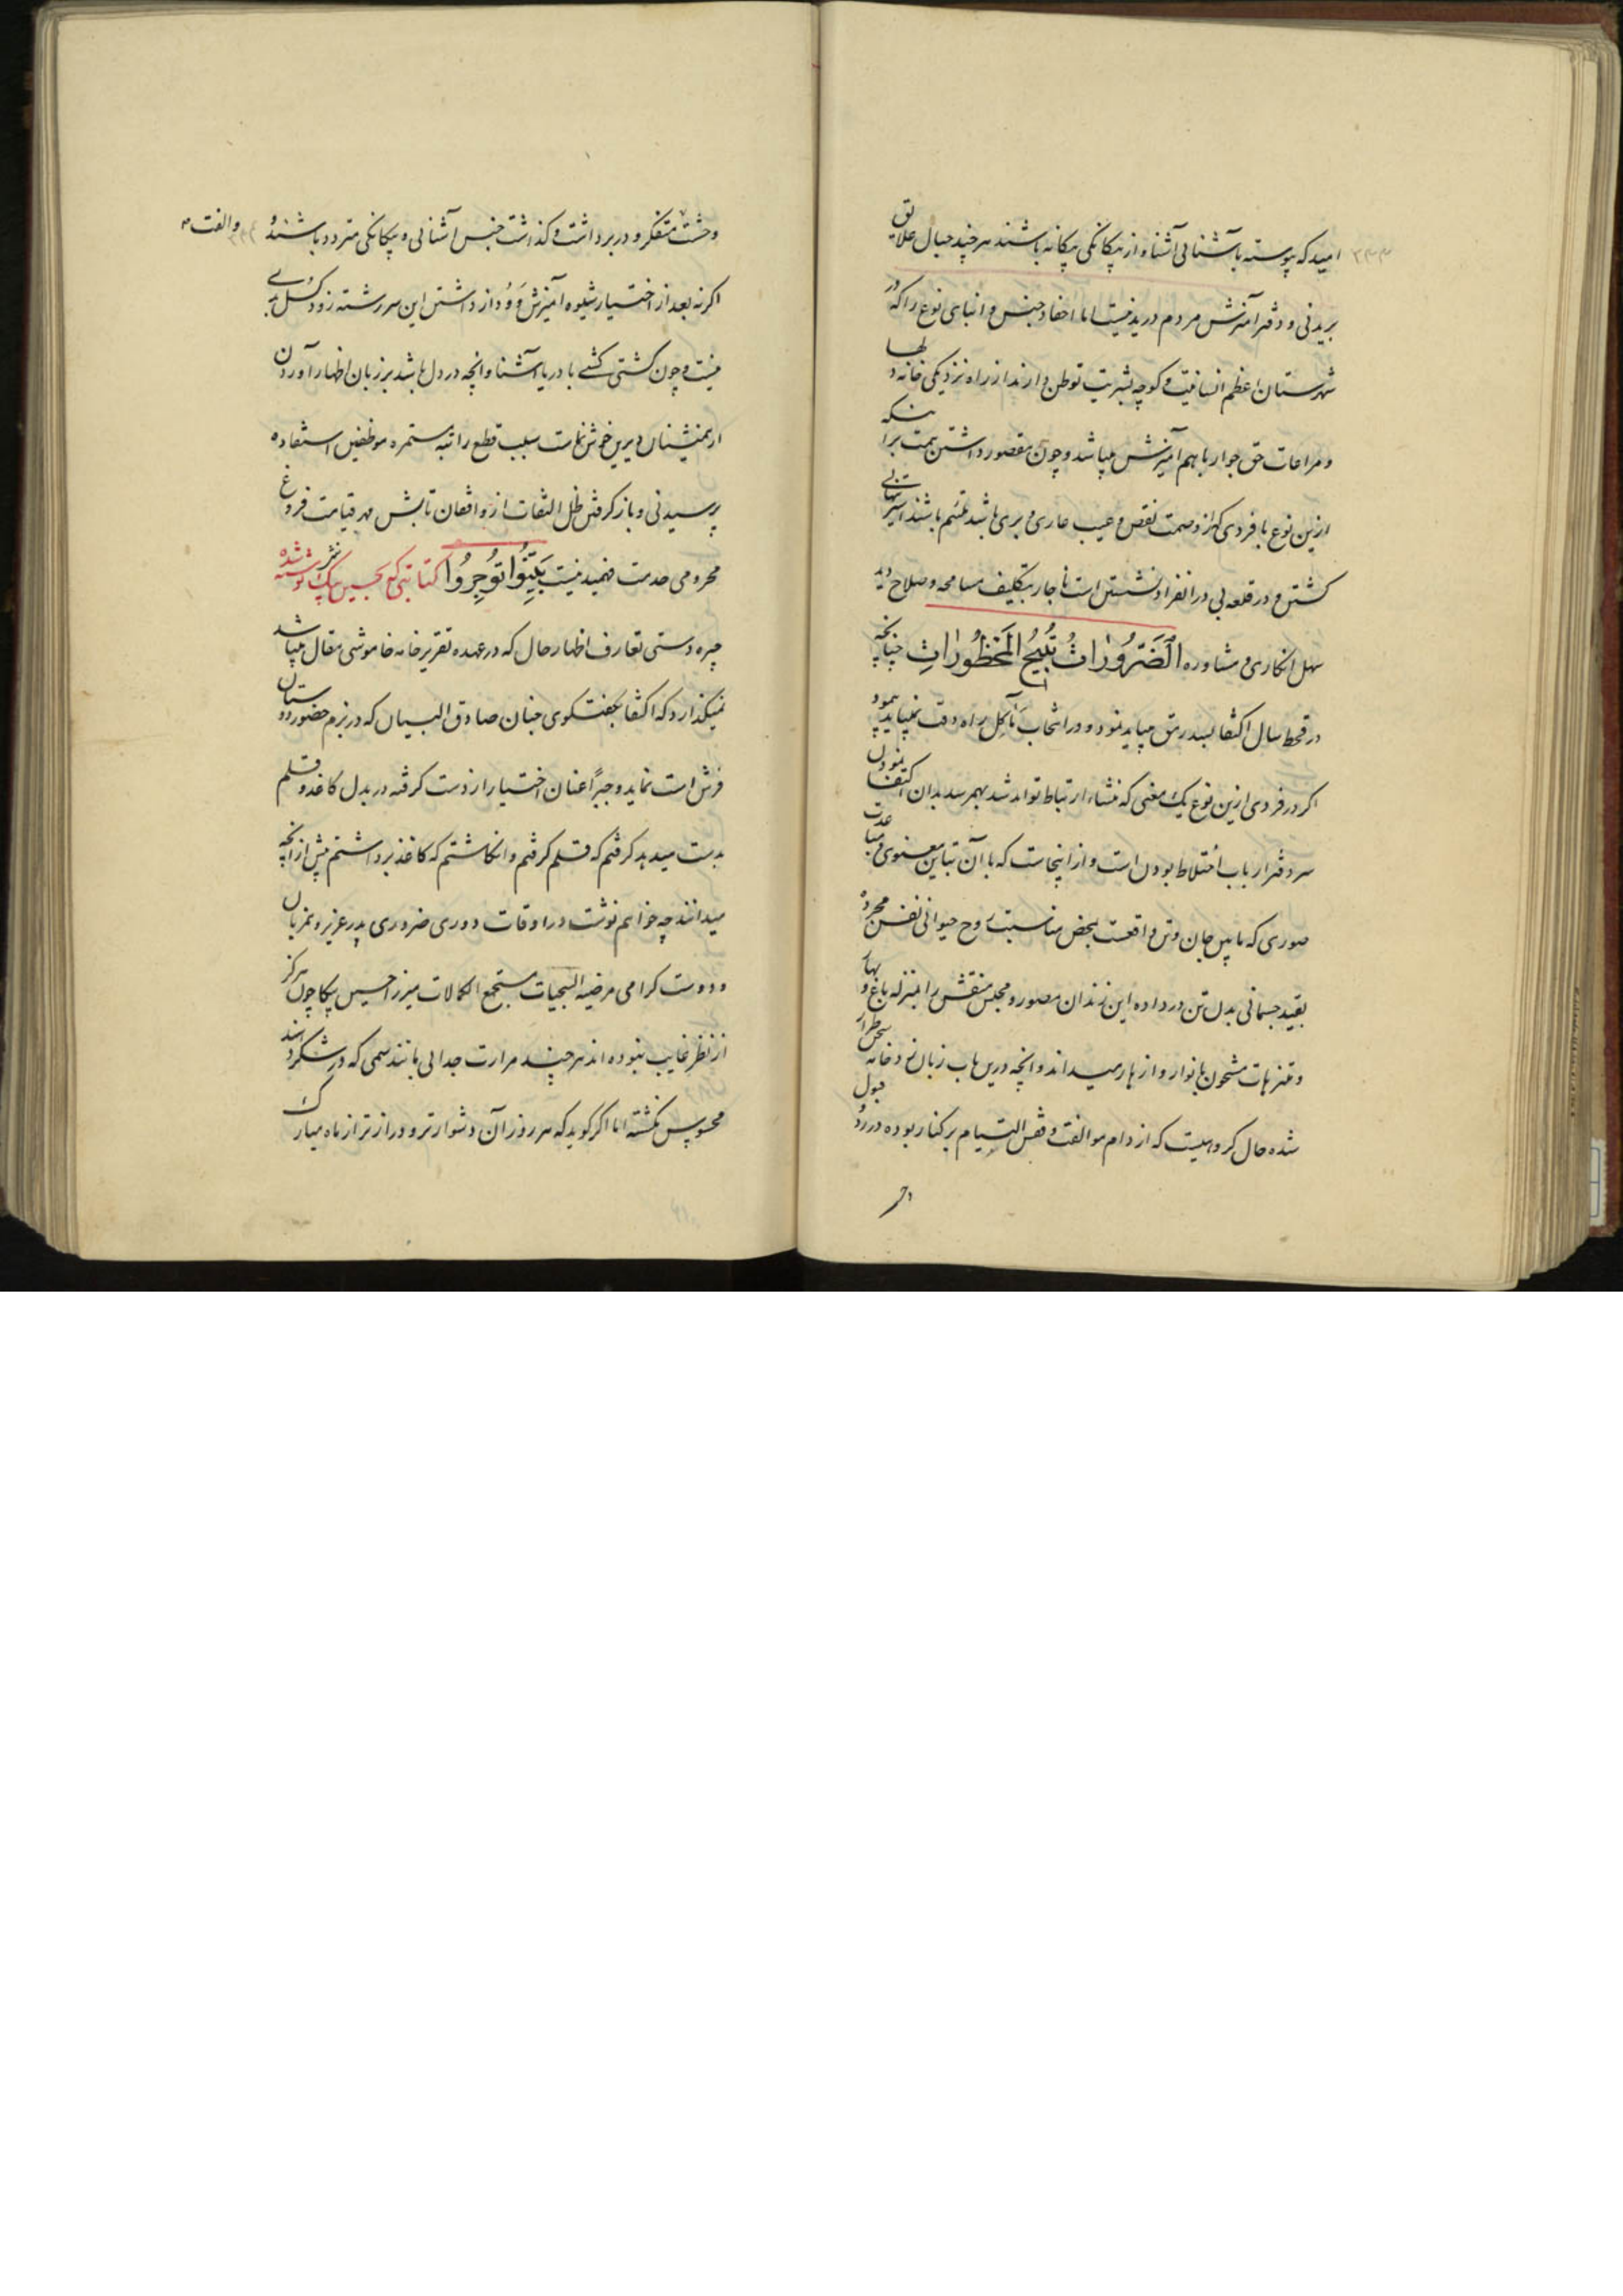 امید که پیوسته با آشنائی آشنا و از بیکانکی بیکانه باشند هر چند حبال علایق
بریدنی و دفتر آمیزش مردم دریدنیست اما احفاد جنس و ابنای نوع را که در
شهرستان اعظم انسانیت و کوچه بشریت توطن دارند از راه نزدیکی خانه دلها
و مراعات حق جوار با هم آمیزش میباشد و چون مقصور داشتن همت برانکه
ازین نوع با فردی که از وصمت نقص و عیب عاری و بری باشد باشند اسیر تنهائی
کشتن و در قلعه بی در انفراد نشستن است ناچار بتکلیف مسامحه و صلاح دید
سهل انکاری و مشاوره الضرورات تبیح المحظورات چنانچه
در قحط سال اکتفا بسد رمق میباید نمود و در انتخاب مآکل راه دقت نمیباید پیمود
اکر در فردی ازین نوع یک معنی که منشاء ارتباط تواند شد بهمرسد بدان اکتفا نمودن
سر دفتر ارباب اختلاط بودن است و از اینجاست که با آن تباین معنوی و مباعدت
صوری که مابین جان و تن واقعست بمحض مناسبت روح حیوانی نفس مجرده
بقید جسمانی بدل تن در داده این زندان مصور و مجلس منقش را بمنزله باغ و بهار
و متنزهات مشحون بانوار و ازهار میداند و انچه درین باب زبان زد خامه
شده حال کروهیست که از دام موالفت و قفس التیام بر کنار بوده در رد و قبول
وحشت متفکر و در برداشت و کذاشت جنس آشنائی و بیکانکی متردد باشند و الفت
اکر نه بعد از اختیار شیوه آمیزش و وداد داشتن این سر رشته زود کسل
نیست و چون کشتی کشی با دریا آشنا و انچه در دل باشد بر زبان اظهار آوردن
از همنشینان دیرین خوش نماست سبب قطع راتبه مستمره موظفین استفاده
پرسیدنی و باز کرفتن ظل التفات از واقفان تابش مهر قیامت فروغ
محرومی خدمت فهمیدنیست بینوا توجروا کتابتی که بحسین بیک نوشته شده نثر
چیره دستی تعارف اظهار حال که در عهده تقریر خامه خاموشی مقال میباشد
نمیکذارد که اکتفا بکفتکوی جنان صادق البیان که در بزم حضور دوستان
فرش است نماید و جبراً عنان اختیار از دست کرفته در بدل کاغذ و قلم
بدست میدهد کرفتم که قلم کرفتم و انکاشتم که کاغذ برداشتم پیش از انچه
میدانند چه خواهم نوشت در اوقات دوری ضروری پدر عزیز و مهربان
و دوست کرامی مرضیه السجیات مستجمع الکمالات میرزا حسین بیکا چون هرکز
از نظر غایب نبوده اند هر چند مرارت جدائی مانند سمی که در شکر دهند
محسوس نکشته اما اکر کوید که هر روز آن دشوارتر و درازتر از ماه مبارک